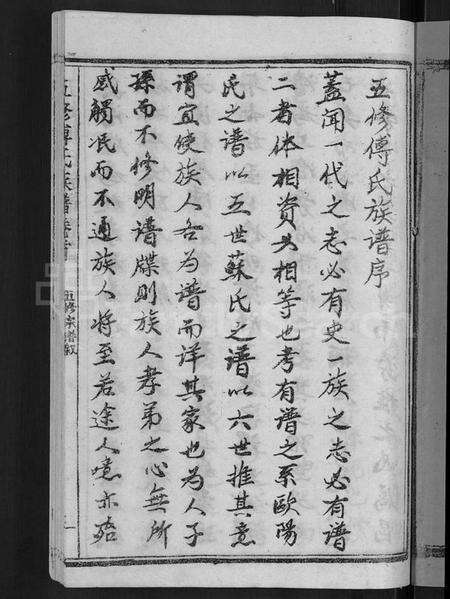 五修傅氏族谱序
蓋闻一代之志必有史一族之志必有譜
二者体相资其相等也考有譜之系歐陽
氏之譜以五世蘇氏之譜以六世推其意
謂宜使族人各為譜而详其家也为人子
孫而不修明譜牒则族人孝弟之心無所
感觸泯而不通族人将至若途人噫亦殆
五修傅氏族譜卷首
五修宗譜叙
一